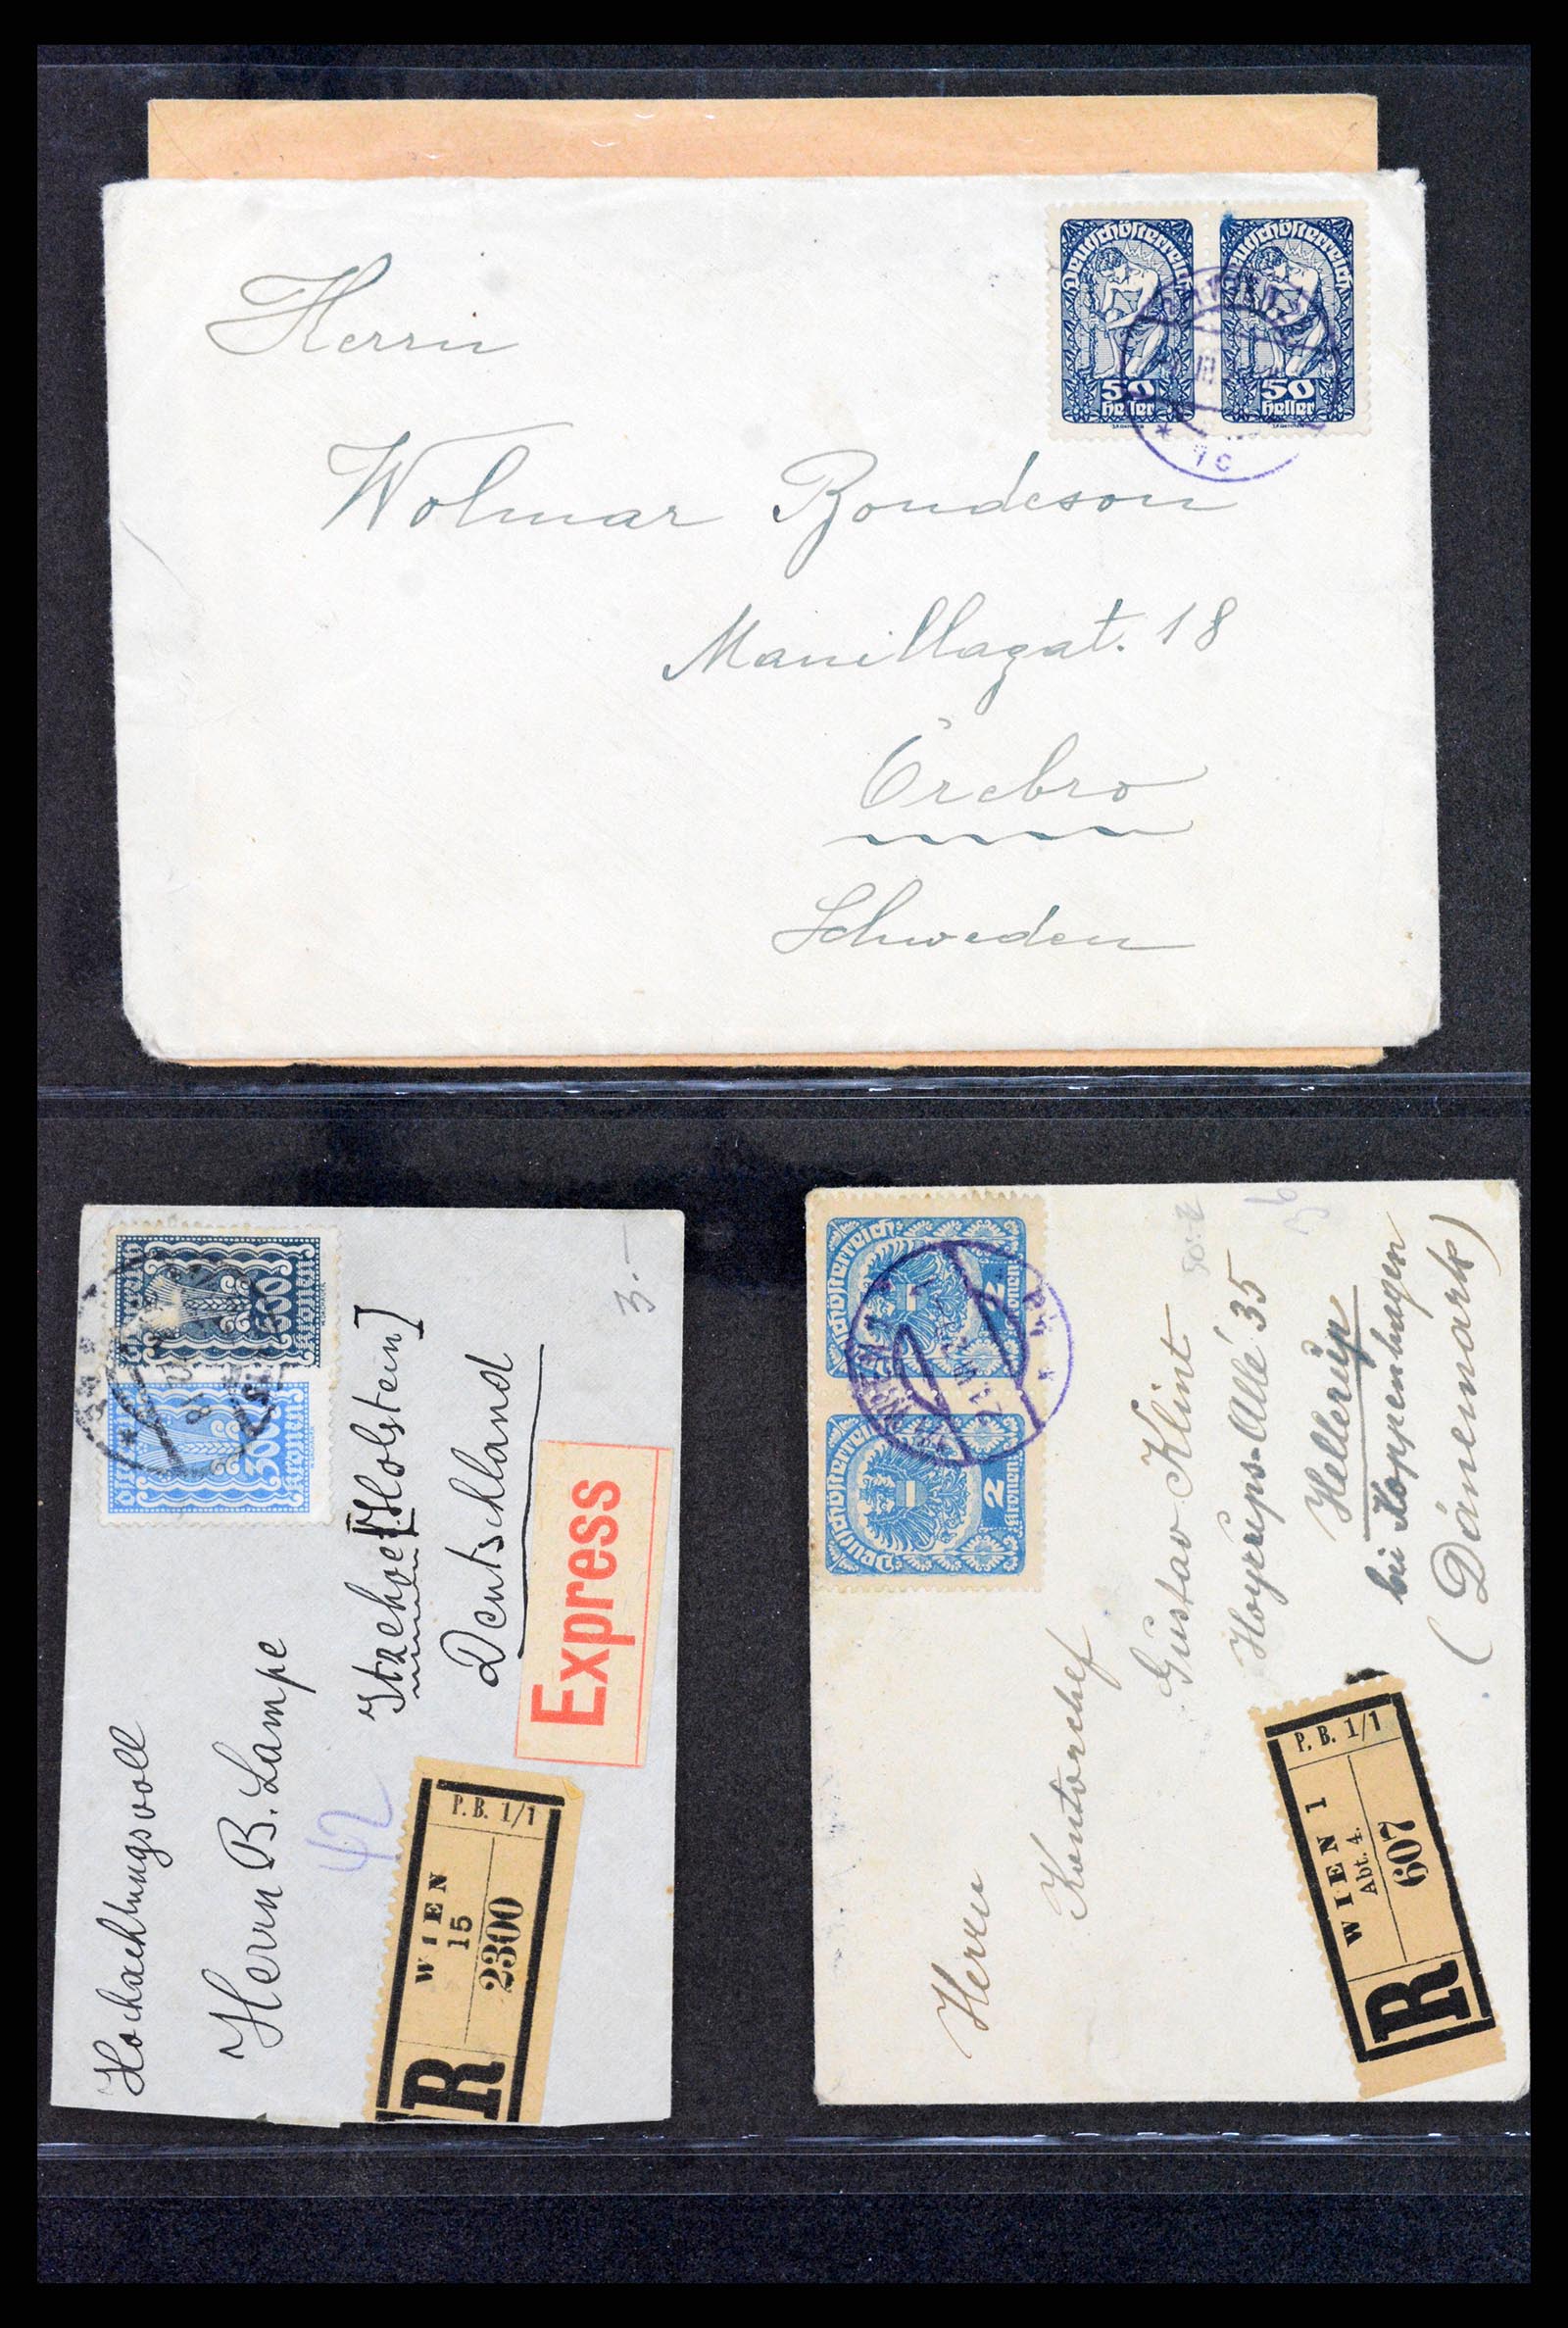 Herrn
Wolmar Bondeson
Manillagat. 18
Örebro
Schweden
Deutschösterreich
50
Heller
Deutschösterreich
50
Heller
1c
500
Kronen
300
Kronen
3.–
Hochachtungsvoll
Herrn B. Lampe
Itzehoe [Holstein]
Deutschland
42
Express
P.B. 1/1
WIEN
15
2300
R
Deutschösterreich
2
Kronen
Deutschösterreich
2
Kronen
WIEN
Herrn
Kontorchef
Gustav Klint
Hoyrups-Allé 35
Hellerup
bei Koppenhagen
(Dänemark)
P.B. 1/1
WIEN 1
Abt. 4.
607
R